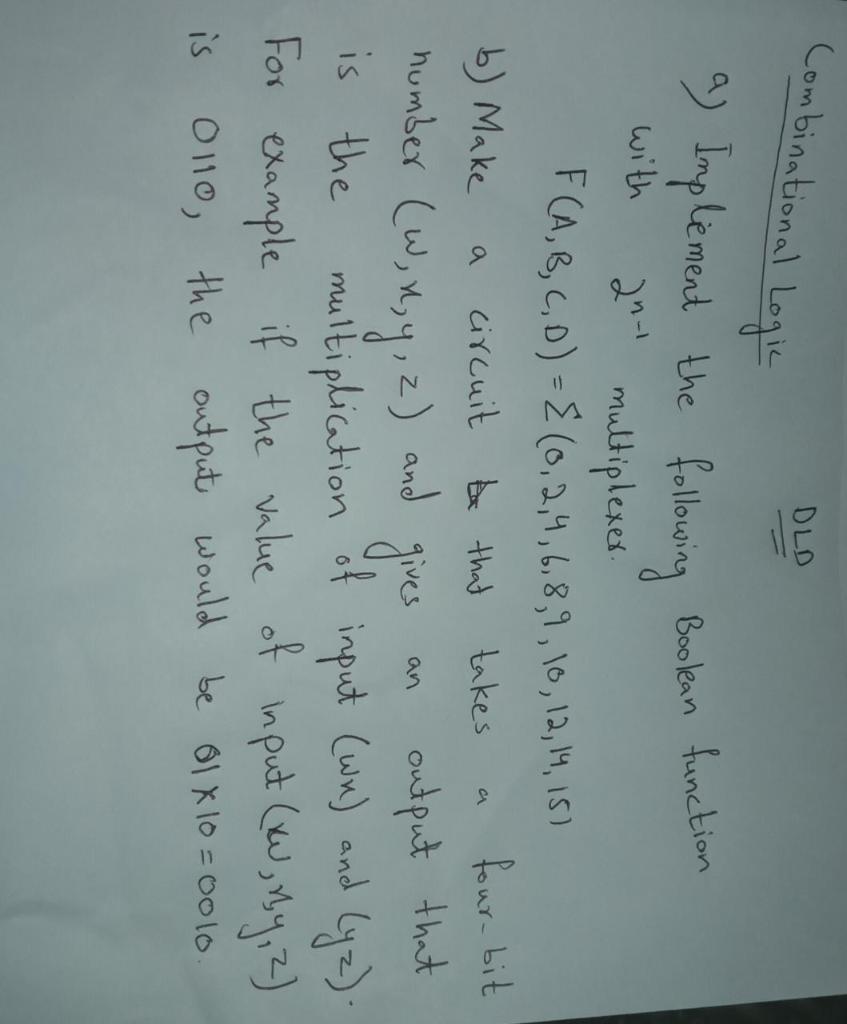 Combinational Logic DLD
a) Implement the following Boolean function
with 2ⁿ⁻¹ multiplexer.
F(A,B,C,D) = Σ(0,2,4,6,8,9,10,12,14,15)
b) Make a circuit that takes a four-bit
number (w,x,y,z) and gives an output that
is the multiplication of input (wx) and (yz).
For example if the value of input (w,x,y,z)
is 0110, the output would be 01×10=0010.